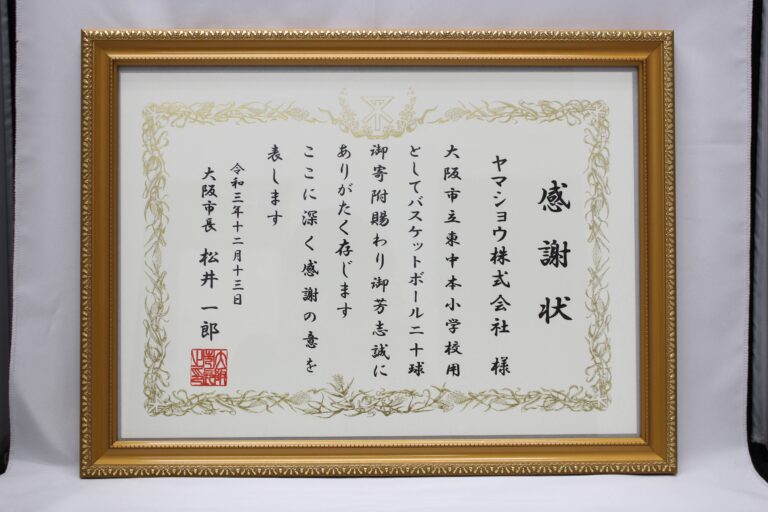 感謝状
ヤマショウ株式会社 様
大阪市立東中本小学校用
としてバスケットボール二十球
御寄附賜わり御芳志誠に
ありがたく存じます
ここに深く感謝の意を
表します
令和三年十二月十三日
大阪市長 松井一郎